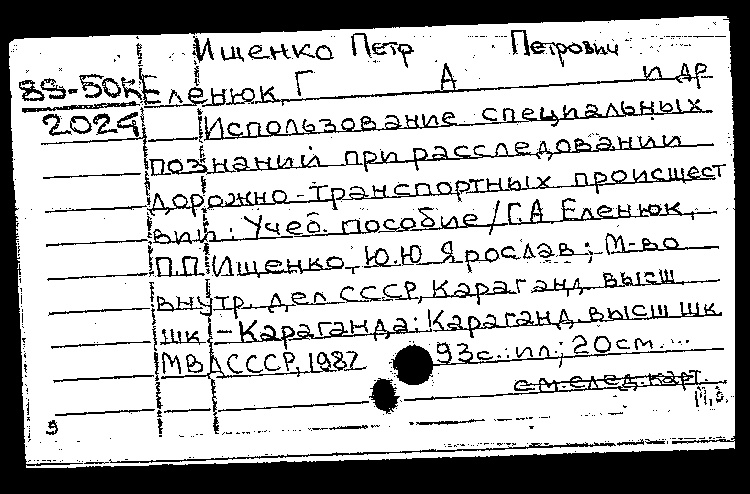 Ищенко Петр Петрович
88-50к Еленюк, Г А и др
2024 Использование специальных
познаний при расследовании
дорожно-транспортных происшест
вий: Учеб. пособие / Г.А Еленюк,
П.П. Ищенко, Ю.Ю Ярослав; М-во
внутр. дел СССР, Караганд. высш.
шк. - Караганда: Караганд. высш шк
МВД СССР, 1987 93с.: ил.; 20см...
см. след. карт.